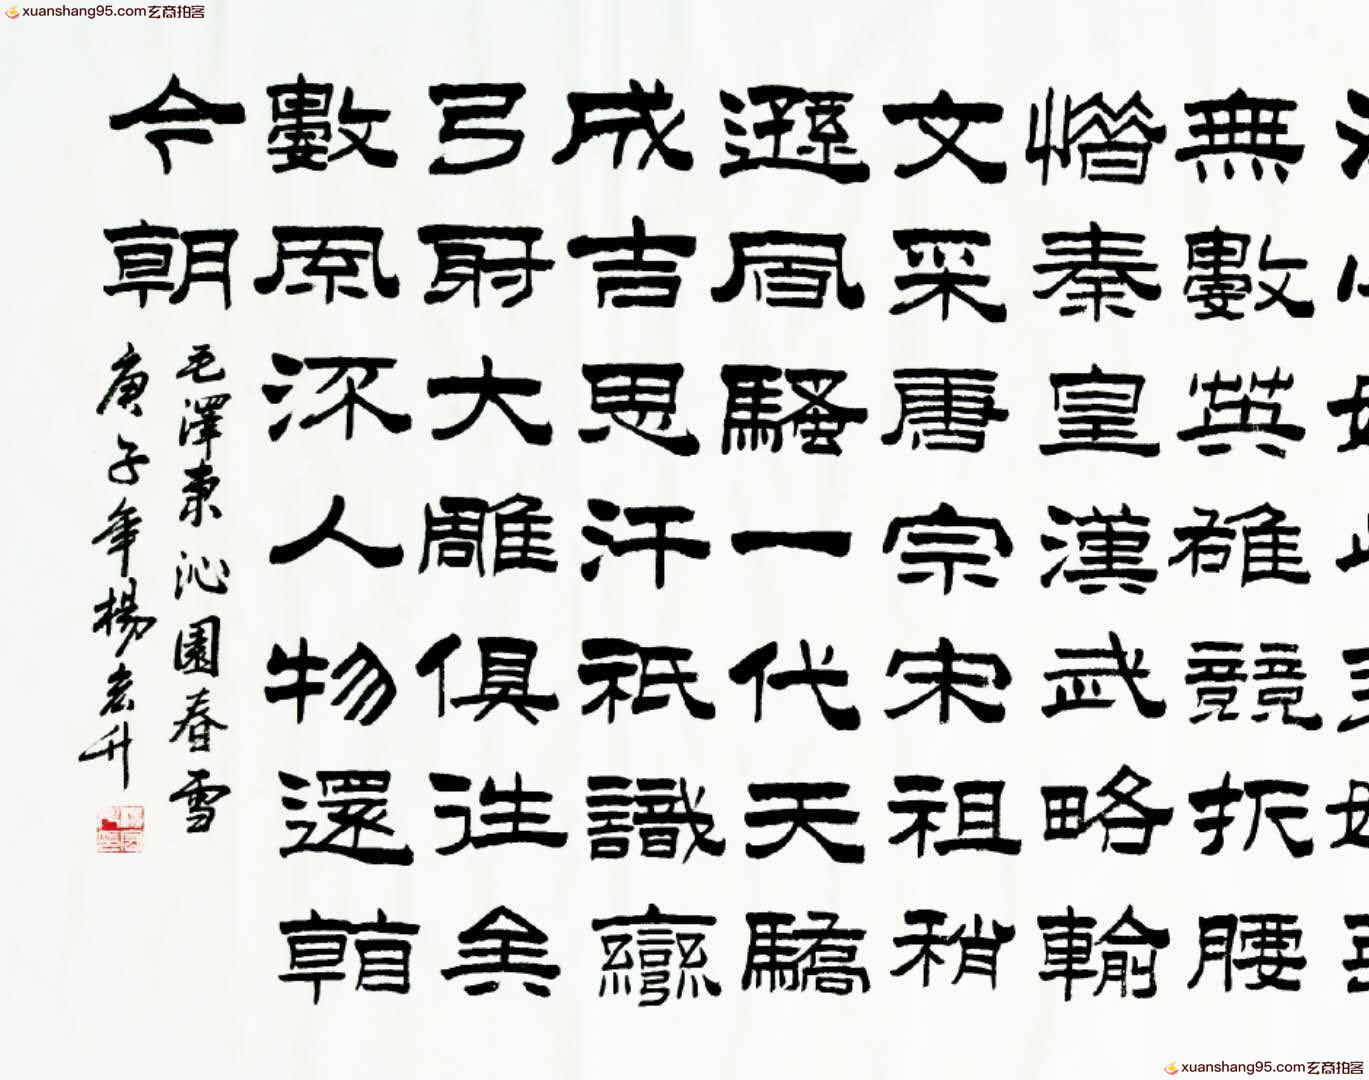 xuanshang95.com玄商拍客
無數英雄競折腰
惜秦皇漢武略輸
文采唐宗宋祖稍
遜風騷一代天驕
成吉思汗祇識彎
弓射大雕俱往矣
數風流人物還看
今朝
毛澤東沁園春雪
庚子年楊宏升
xuanshang95.com玄商拍客